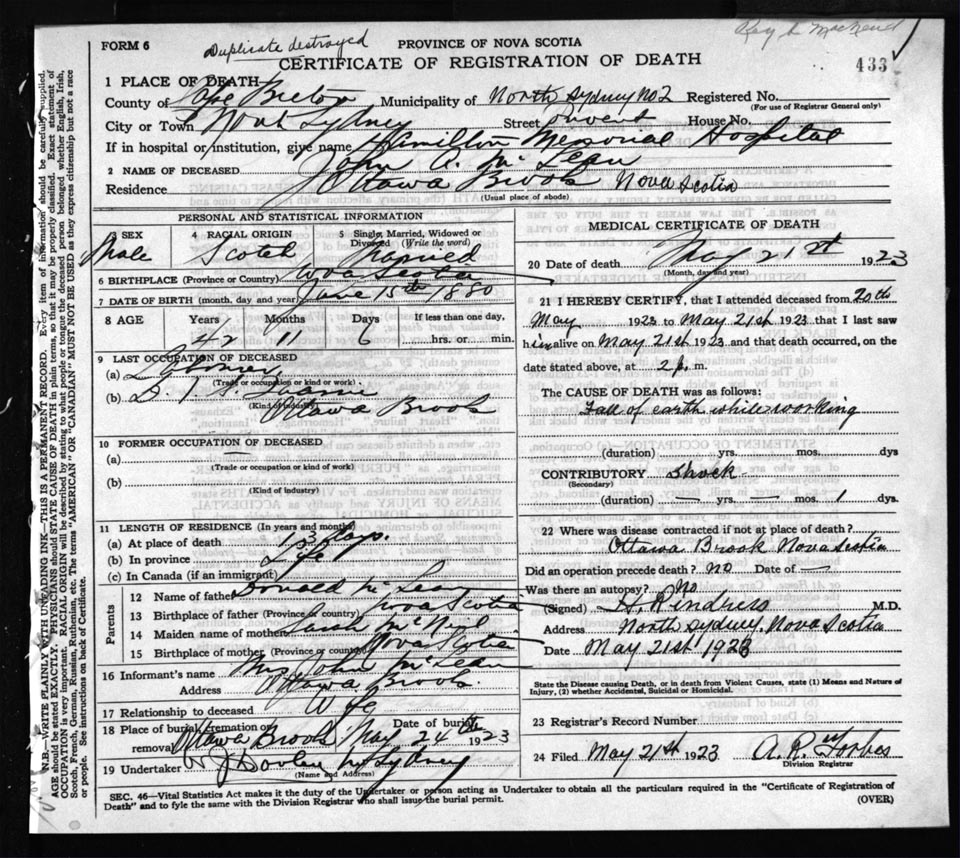 Duplicate destroyed
433
FORM 6
PROVINCE OF NOVA SCOTIA
CERTIFICATE OF REGISTRATION OF DEATH
1 PLACE OF DEATH—
County of Cape Breton Municipality of North Sydney No 2 Registered No.
(For use of Registrar General only)
City or Town North Sydney Street House No.
If in hospital or institution, give name Hamilton Memorial Hospital
2 NAME OF DECEASED John A. McLean
Residence Ottawa Brook Nova Scotia
(Usual place of abode)
PERSONAL AND STATISTICAL INFORMATION
3 SEX Male
4 RACIAL ORIGIN Scotch
5 Single, Married, Widowed or Divorced (Write the word) Married
6 BIRTHPLACE (Province or Country) Nova Scotia
7 DATE OF BIRTH (month, day and year) June 15th 1880
8 AGE Years Months Days If less than one day,
42 11 6 hrs. or min.
9 LAST OCCUPATION OF DECEASED
(a) Laborer
(Trade or occupation or kind of work)
(b)
(Kind of industry)
Ottawa Brook
10 FORMER OCCUPATION OF DECEASED
(a) —
(Trade or occupation or kind of work)
(b)
(Kind of industry)
11 LENGTH OF RESIDENCE (In years and months)
(a) At place of death days.
(b) In province Life
(c) In Canada (if an immigrant)
Parents
12 Name of father Donald McLean
13 Birthplace of father (Province or country) Nova Scotia
14 Maiden name of mother Sarah McNeil
15 Birthplace of mother (Province or country) Nova Scotia
16 Informant's name Mrs John McLean
Address Ottawa Brook
17 Relationship to deceased Wife
18 Place of burial, cremation or removal Ottawa Brook Date of burial May 24th 1923
19 Undertaker N Sydney
(Name and Address)
MEDICAL CERTIFICATE OF DEATH
20 Date of death May 21st 1923
(Month, day and year)
21 I HEREBY CERTIFY, that I attended deceased from 20th
May 1923 to May 21st 1923 that I last saw
him alive on May 21st 1923 and that death occurred, on the
date stated above, at 2 p. m.
The CAUSE OF DEATH was as follows:
Fall of earth while working
(duration) yrs. mos. dys
CONTRIBUTORY Shock
(Secondary)
(duration) — yrs. — mos. 1 dys.
22 Where was disease contracted if not at place of death?
Ottawa Brook Nova Scotia
Did an operation precede death? No Date of —
Was there an autopsy? No
(Signed) M.D.
Address North Sydney, Nova Scotia
Date May 21st 1923
State the Disease causing Death, or in death from Violent Causes, state (1) Means and Nature of
Injury, (2) whether Accidental, Suicidal or Homicidal.
23 Registrar's Record Number
24 Filed May 21st 1923 A. R. Forbes
Division Registrar
SEC. 46—Vital Statistics Act makes it the duty of the Undertaker or person acting as Undertaker to obtain all the particulars required in the "Certificate of Registration of
Death" and to fyle the same with the Division Registrar who shall issue the burial permit.
(OVER)
N.B.—WRITE PLAINLY WITH UNFADING INK—THIS IS A PERMANENT RECORD. Every item of information should be carefully supplied.
AGE should be stated EXACTLY. PHYSICIANS should STATE CAUSE OF DEATH in plain terms, so that it may be properly classified. Exact statement of
OCCUPATION is very important. RACIAL ORIGIN will be described by stating to what people or tongue the deceased person belonged whether English, Irish,
Scotch, French, German, Russian, Ruthenian, etc. The terms "AMERICAN" OR "CANADIAN" MUST NOT BE USED as they express citizenship but not a race
or people. See instructions on back of Certificate.